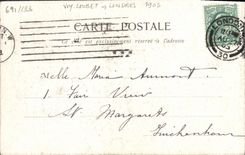 691/126 VOY. LOUBET à LONDRES 1903
CARTE POSTALE
Ce côté est exclusivement réservé à l'adresse
LONDON
Melle Maria Aumont
1 Fair View
St Margarets
Twickenham